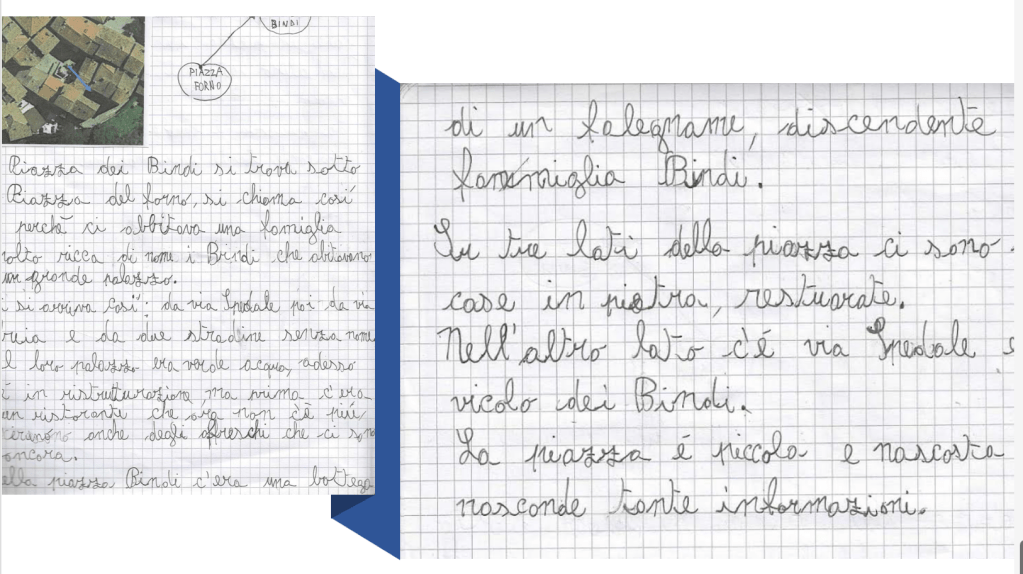 BINDI
PIAZZA
FORNO
Piazza dei Bindi si trova sotto
Piazza del forno, si chiama così
perchè ci abbitava una famiglia
olto ricca di nome i Bindi che abitavano
un grande palazzo.
i si arriva così: da via Spedale poi da via
e da due stradine senza nome
l loro palazzo era verde acqua, adesso
é in ristrutturazione ma prima c'era
un ristorante che ora non c'è più
anche degli afreschi che ci sono
ancora.
ella piazza Bindi c'era una bottega
di un falegname, discendente
famiglia Bindi.
Su tre lati della piazza ci sono
case in pietra, restuarate.
Nell'altro lato c'é via Spedale s
vicolo dei Bindi.
La piazza é piccola e nascosta
nasconde tante informazioni.